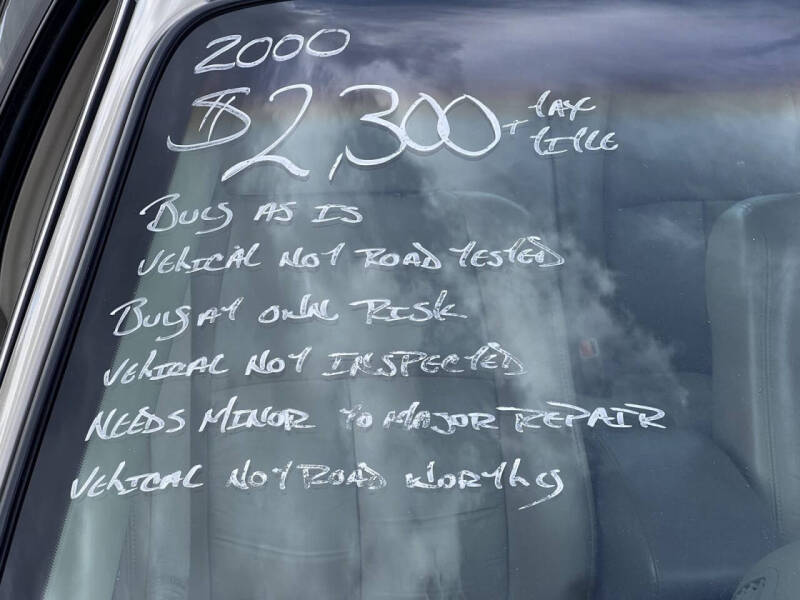 2000
$2,300 + tax title
Buy AS IS
VEHICAL NOT ROAD TESTED
Buy AT OWN RISK
VEHICAL NOT INSPECTED
NEEDS MINOR TO MAJOR REPAIR
VEHICAL NOT ROAD WORTHY